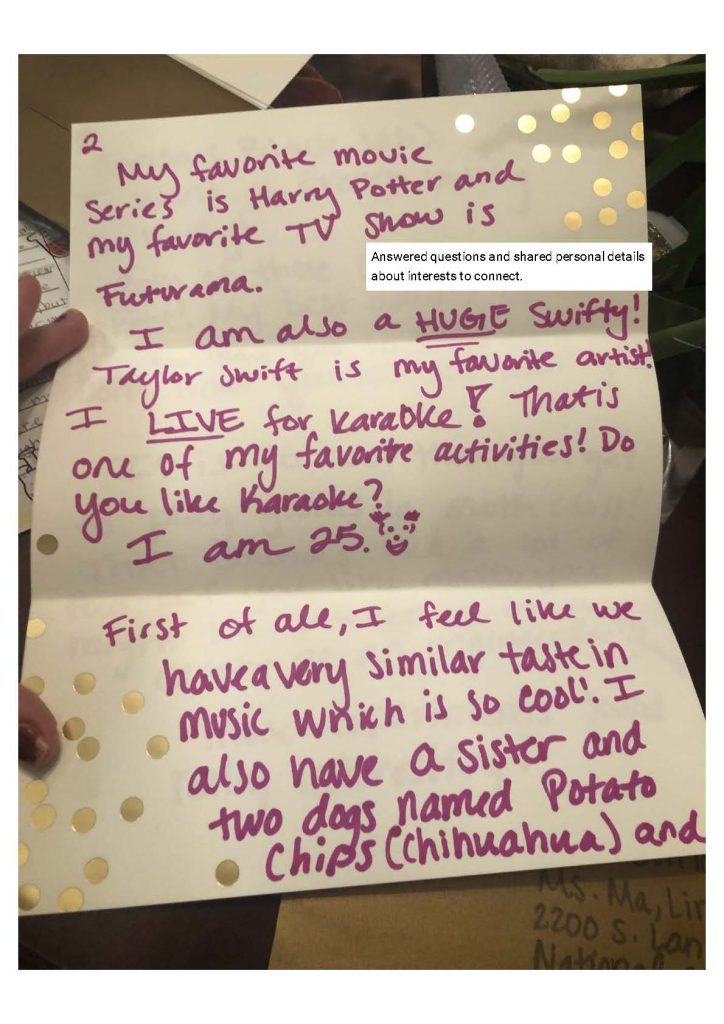 2
My favorite movie
series is Harry Potter and
my favorite TV show is
Answered questions and shared personal details
about interests to connect.
Futurama.
I am also a HUGE Swifty!
Taylor Swift is my favorite artist!
I LIVE for Karaoke! That is
one of my favorite activities! Do
you like Karaoke?
I am 25.
First of all, I feel like we
have a very similar taste in
music which is so cool! I
also have a sister and
two dogs named Potato
Chips (chihuahua) and
Ms. Ma, Lin
2200 S. Lan
National